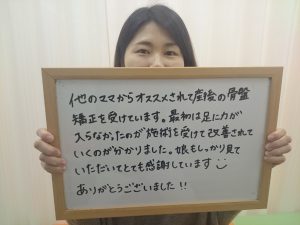 他のママからオススメされて産後の骨盤
矯正を受けています。最初は足に力が
入らなかったのが施術を受けて改善されて
いくのが分かりました。娘もしっかり見て
いただいてとても感謝しています
ありがとうございました!!